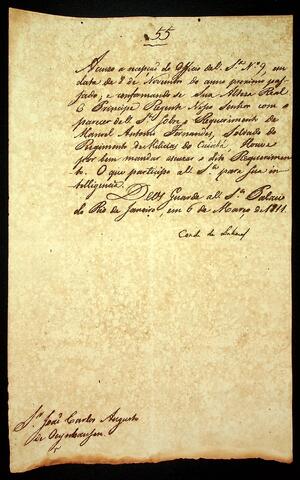 55
Accuso a recepção do Officio de V. Sª Nº 9, em
data de 2 de Novembro do anno proximo pas-
sado; e conformando-se Sua Alteza Real
O Principe Regente Nosso Senhor com o
parecer de V. Sª sobre o Requerimento de
Manoel Antonio Fernandes, Soldado do
Regimento de Milicias do Cuiabá, Houve
por bem mandar escusar o dito Requerimen-
to. O que participo a V. Sª para sua in-
telligencia.
Deos Guarde a V. Sª Palacio
do Rio de Janeiro, em 6 de Março de 1811.
Conde de Linhares
Sr. João Carlos Augusto
de Oeynhausen.